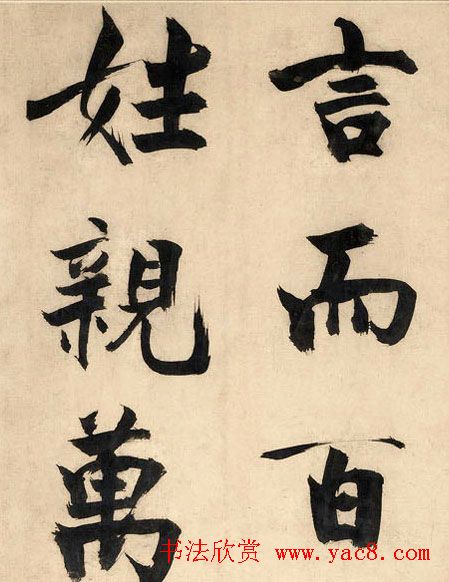 言而百
姓親萬
书法欣赏 www.yac8.com